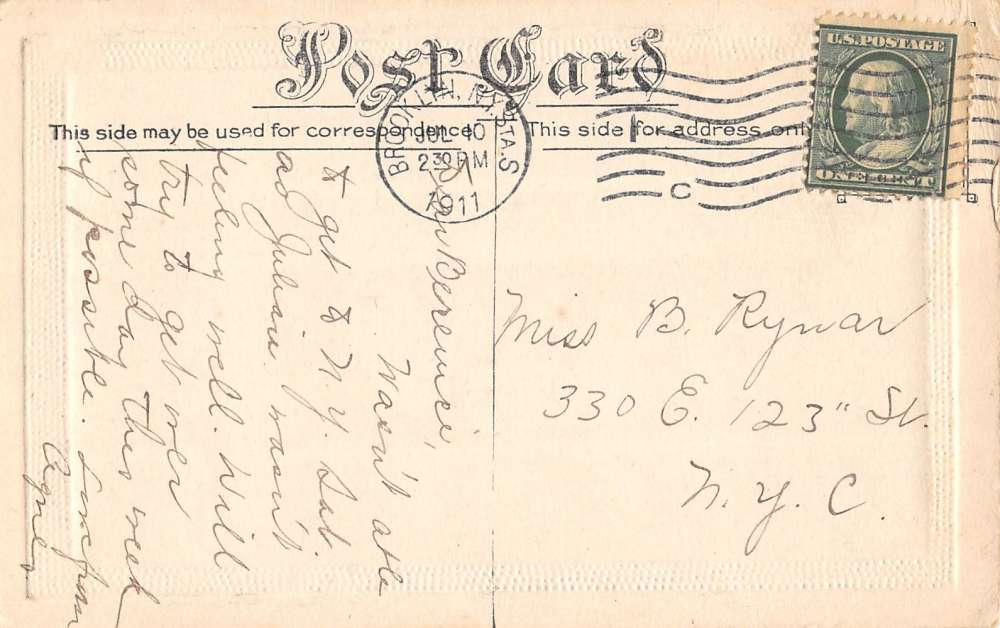 Post Card
This side may be used for correspondence.
This side for address only
U.S. POSTAGE
ONE CENT
BROOKLYN, N.Y. STA. S
JUL 10
230 PM
1911
C
Dear Berenice,
Wasn't able
to get to N.Y. Sat.
as Julia wasn't
feeling well. Will
try to get over
some day this week
if possible.
Agnes
Miss B. Rynar
330 E. 123" St.
N. Y. C.